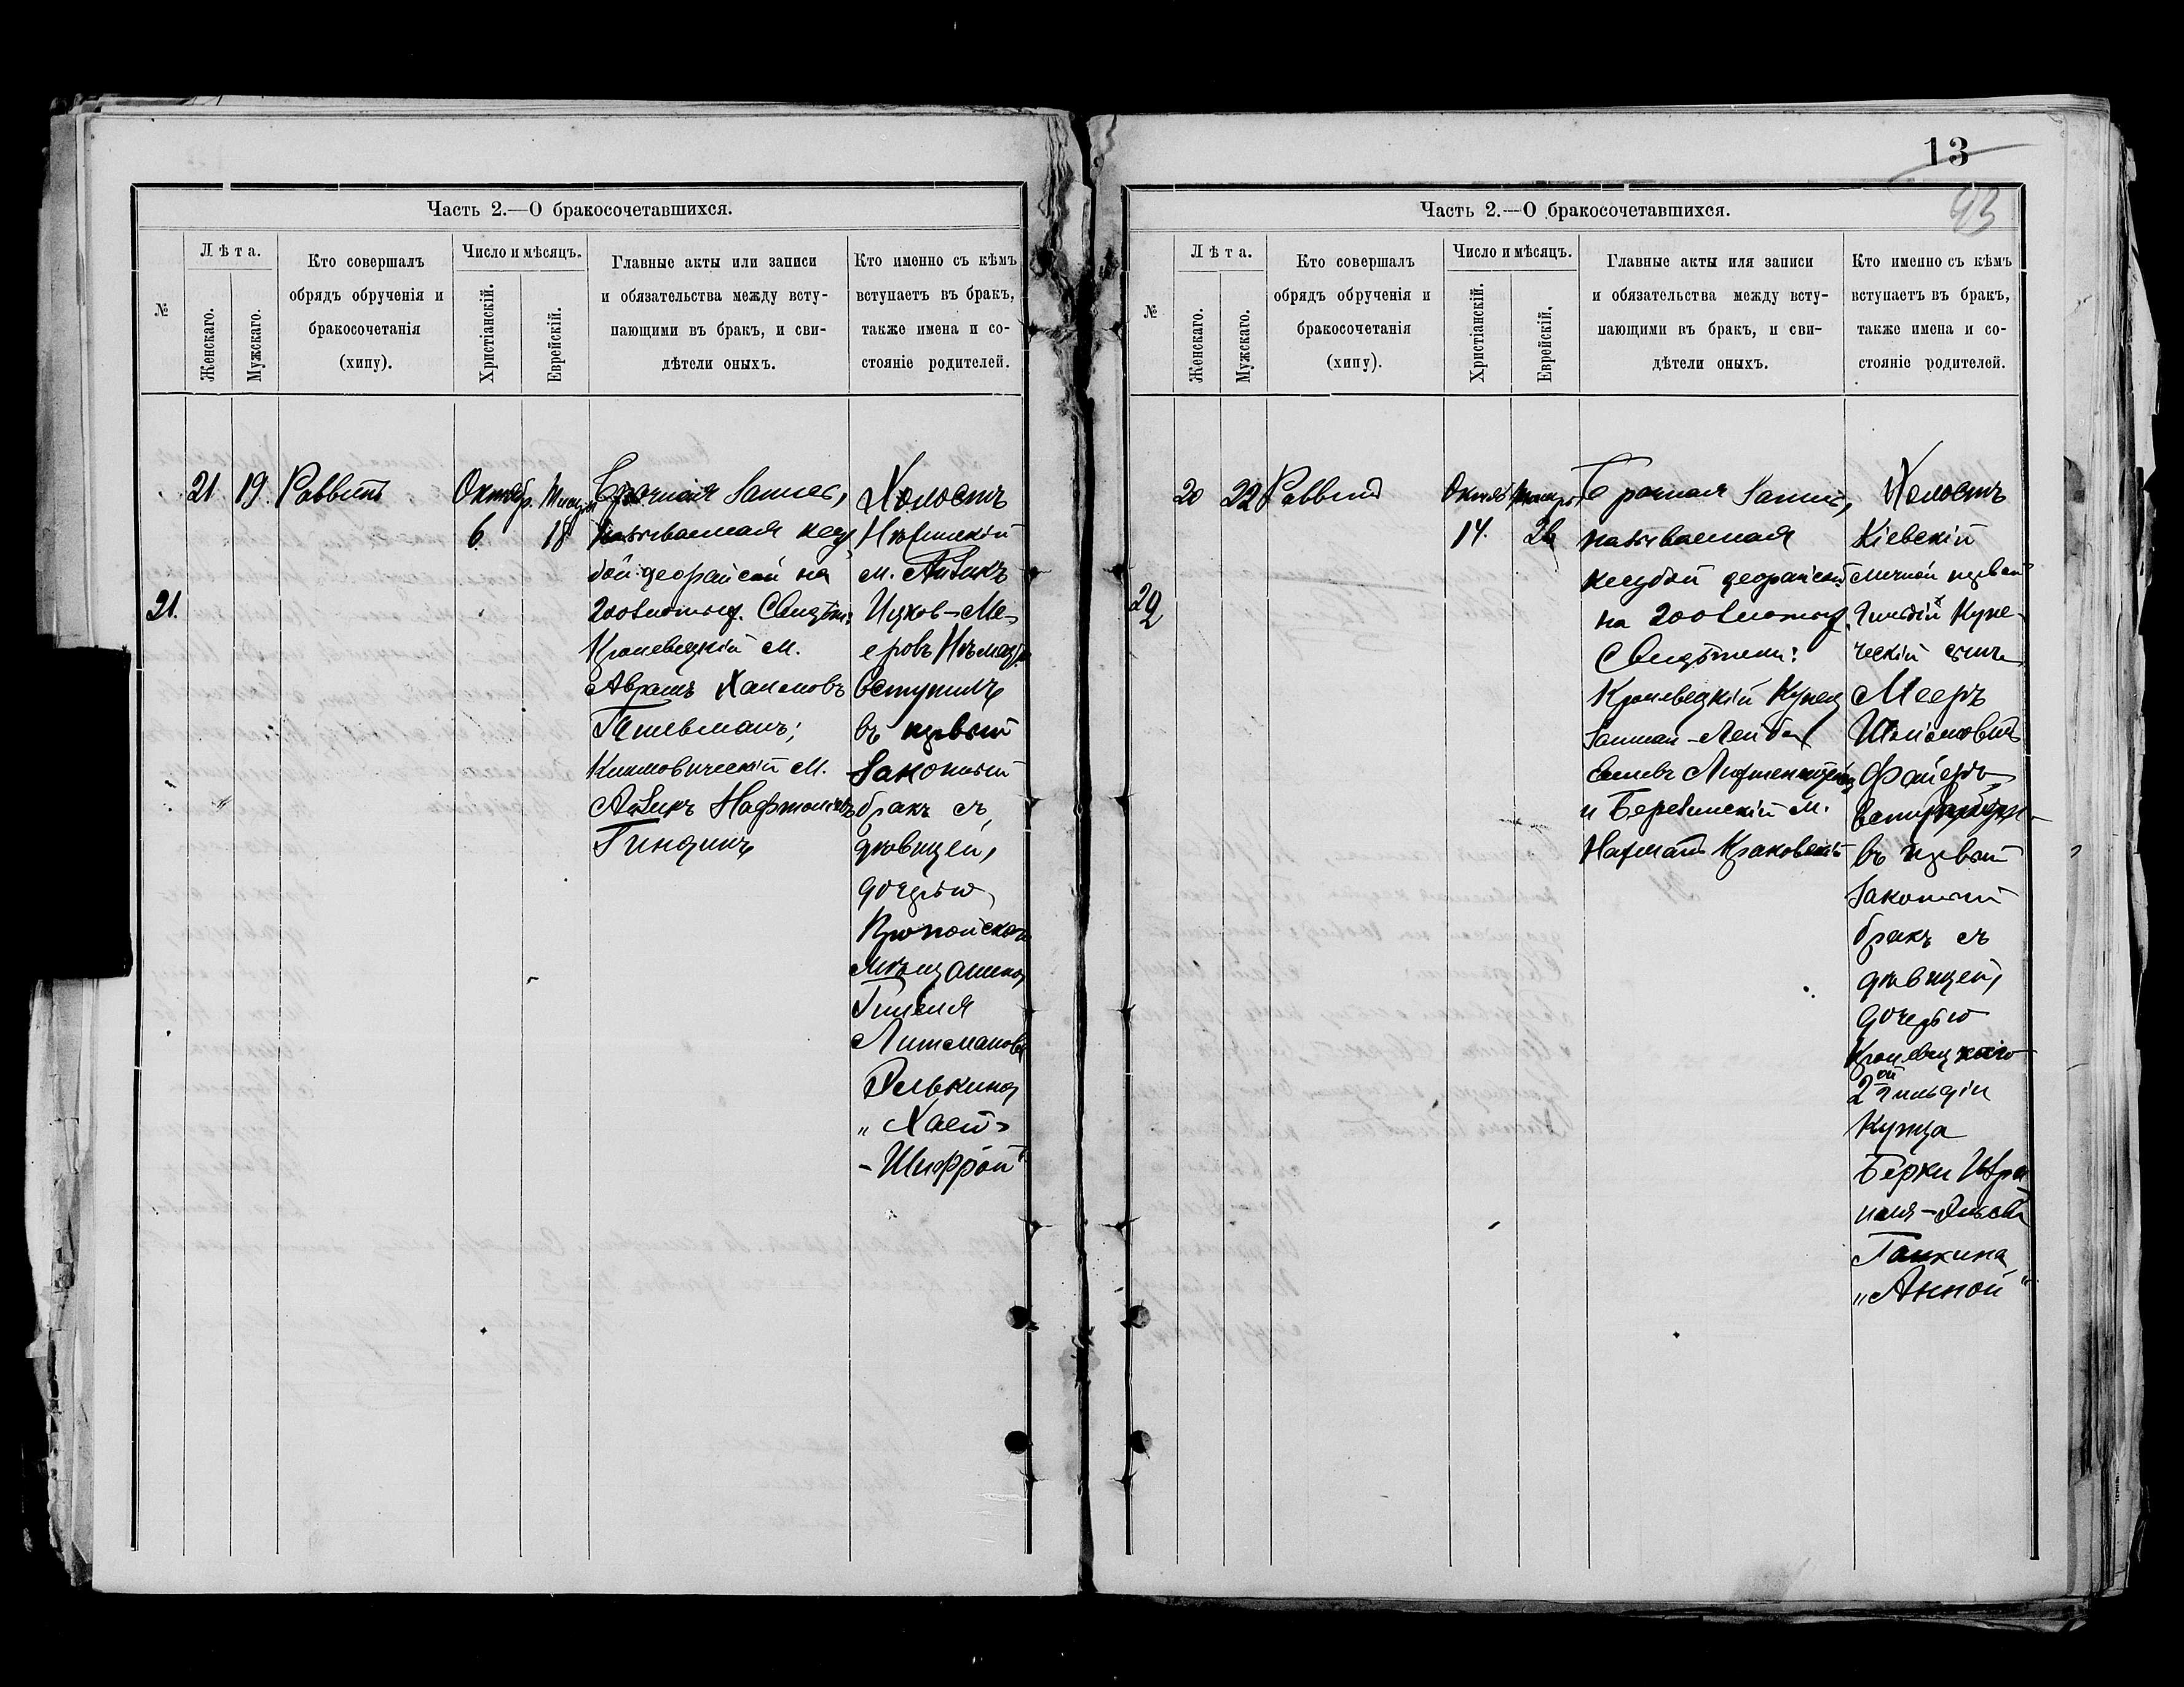 Часть 2.—О бракосочетавшихся.
№
Лѣта.
Женскаго.
Мужскаго.
Кто совершалъ
обрядъ обрученія и
бракосочетанія
(хипу).
Число и мѣсяцъ.
Христіанскій.
Еврейскій.
Главные акты или записи
и обязательства между всту-
пающими въ бракъ, и сви-
дѣтели оныхъ.
Кто именно съ кѣмъ
вступаетъ въ бракъ,
также имена и со-
стояніе родителей.
21.
21
19.
Раввинъ
Октябр.
6
18
Брачная Запись,
называемая кесу
бой деорайсой на
200 злотыхъ. Свидѣт:
Кролевецкій М.
Абрамъ Хаимовъ
Климовическій М.
Айзикъ
Гиндинъ
Холостъ
м. Айзикъ
Ицков-Ме-
еровъ
вступилъ
въ первый
законный
бракъ съ
дѣвицей,
дочерью
Пропойскаго
мѣщанина
Литманова
Рывкина
„Хаей-
-Шифрой"
13
93
Часть 2.—О бракосочетавшихся.
№
Лѣта.
Женскаго.
Мужскаго.
Кто совершалъ
обрядъ обрученія и
бракосочетанія
(хипу).
Число и мѣсяцъ.
Христіанскій.
Еврейскій.
Главные акты или записи
и обязательства между всту-
пающими въ бракъ, и сви-
дѣтели оныхъ.
Кто именно съ кѣмъ
вступаетъ въ бракъ,
также имена и со-
стояніе родителей.
20
22
Раввинъ
14.
26
Брачная Запись,
называемая
кесубой деорайсой
на 200 злотыхъ
Свидѣтели:
Кролевецкій Купец
Залман-Лейба
и Березинскій М.
Краковскій
Холостъ
Кіевскій
первой
Гильдіи Купе-
ческій сынъ
Мееръ
въ первый
законный
бракъ съ
дѣвицей,
дочерью
Кролевецкаго
2ой Гильдіи
Купца
Берки Изра
Ганкина
„Анной"